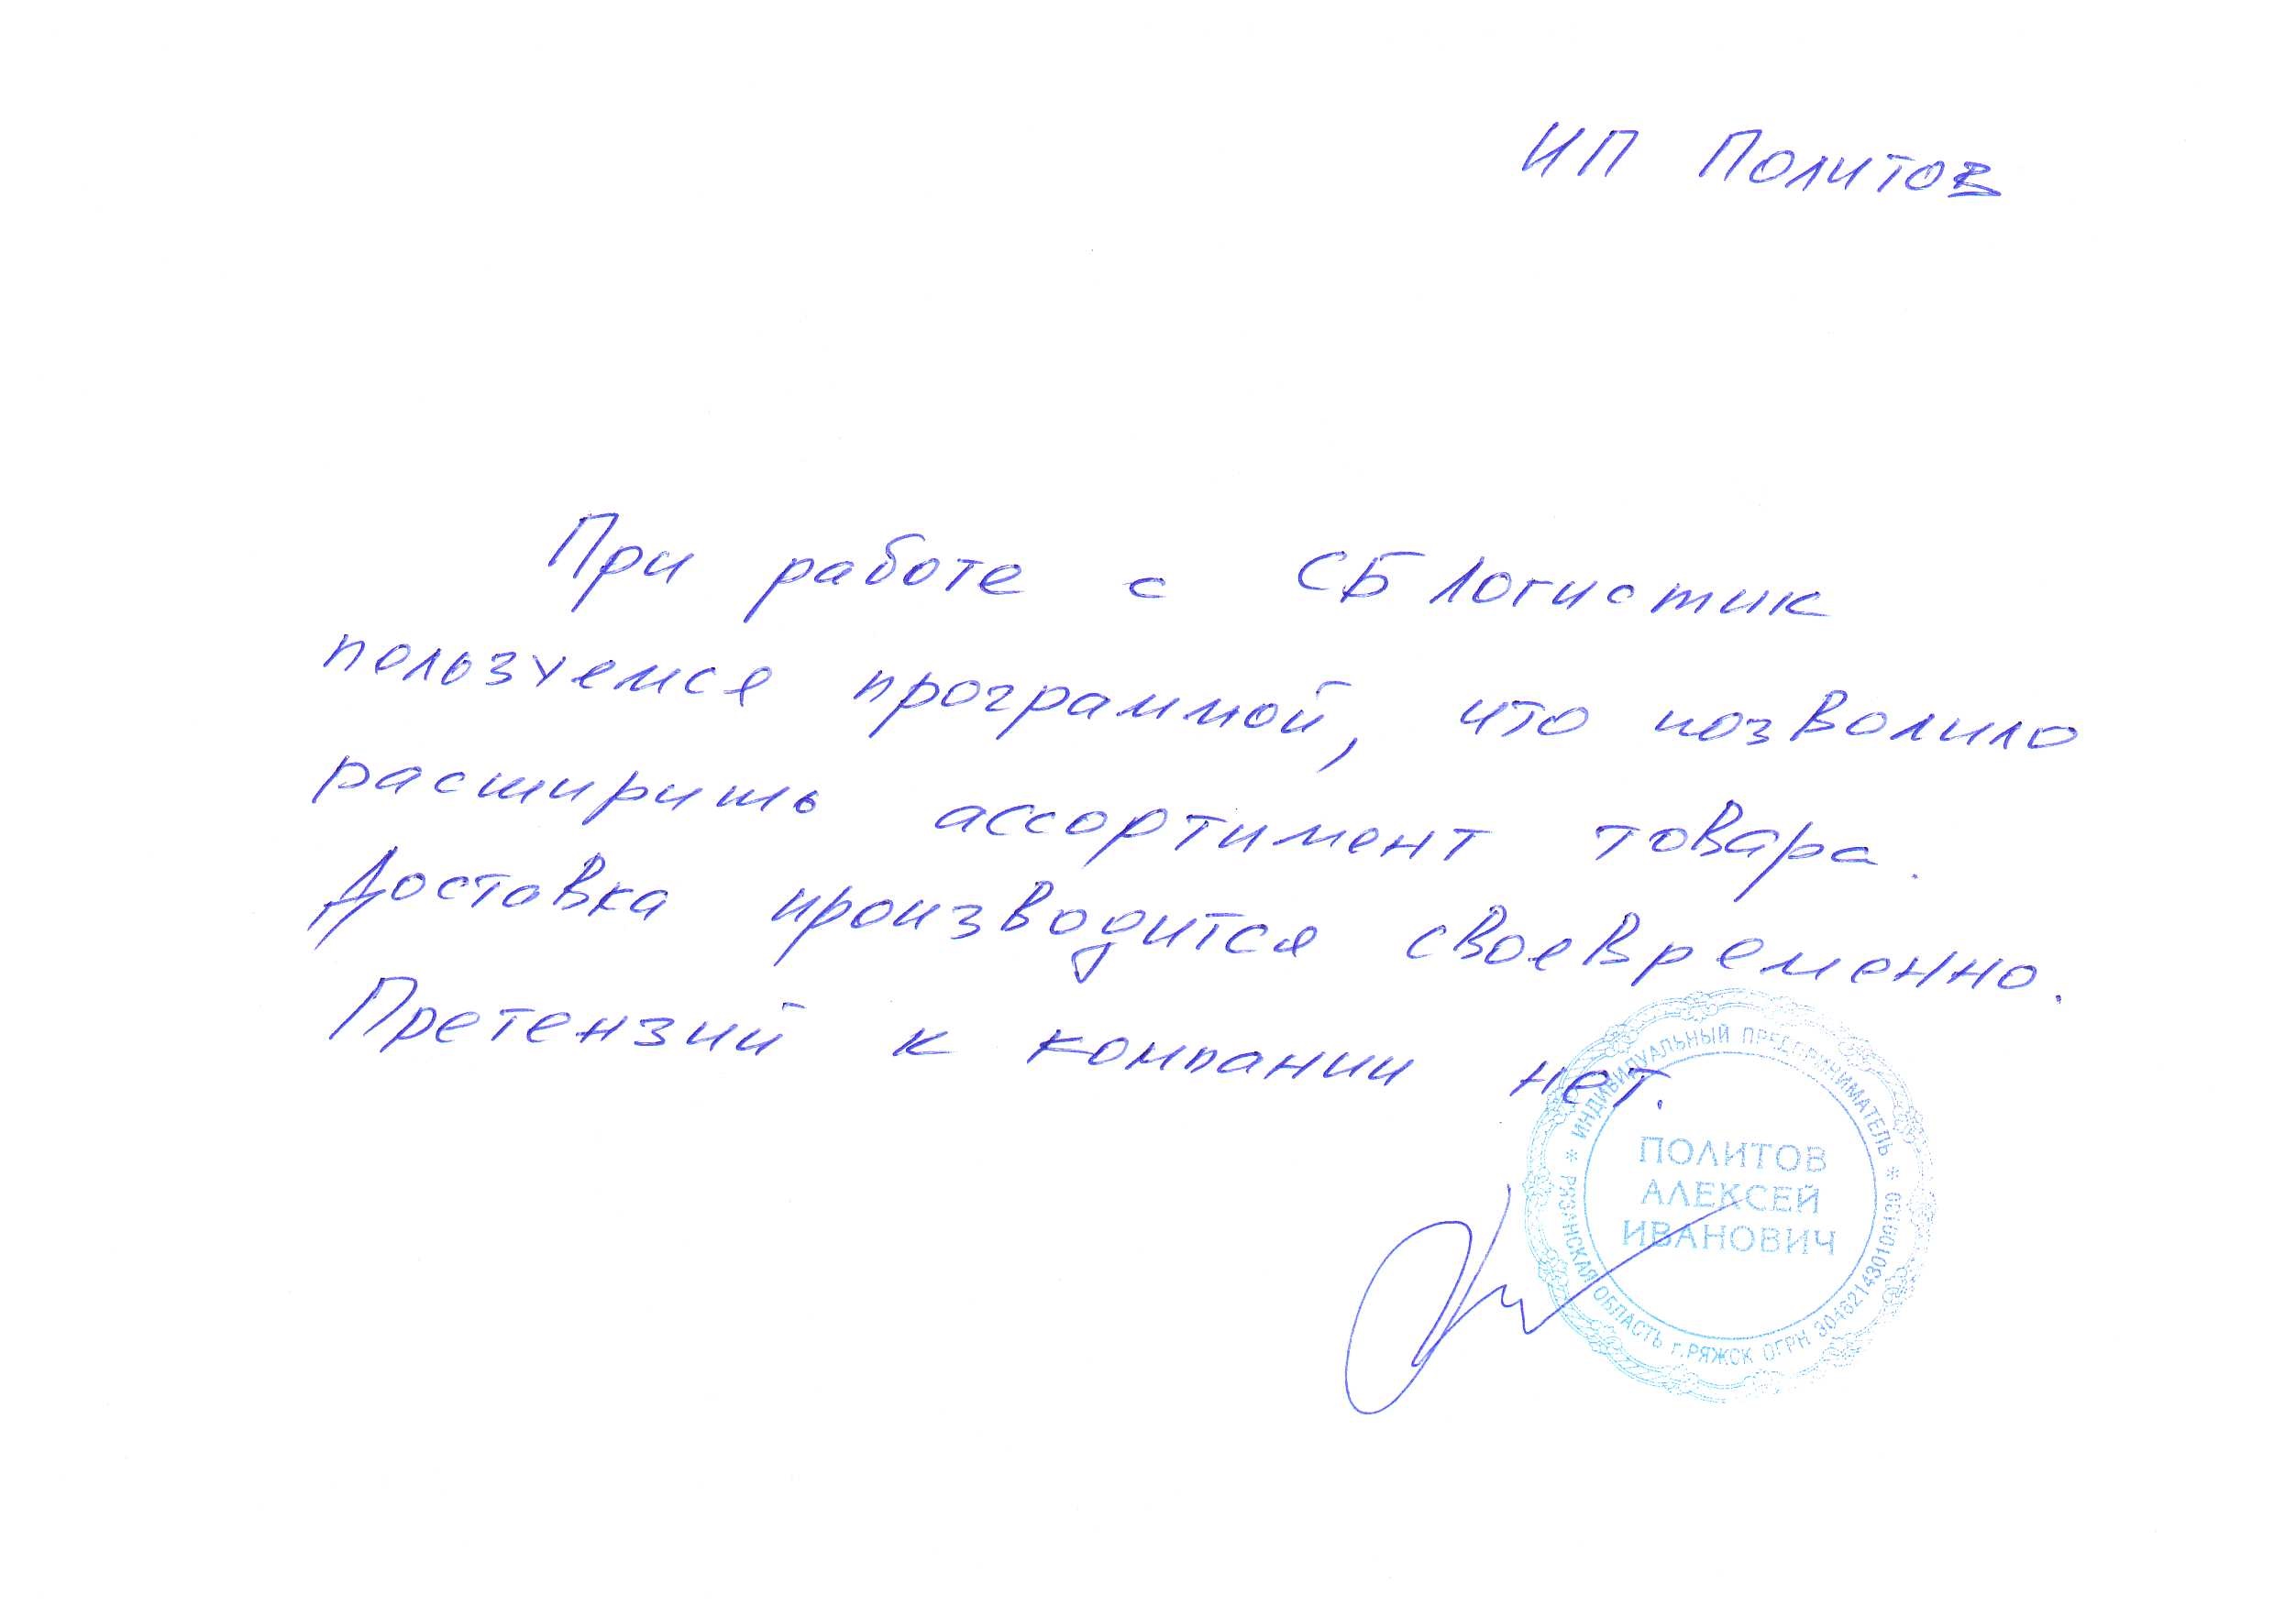 ИП Политов
При работе с СБ Логистик
пользуемся программой, что позволило
расширить ассортимент товара.
Доставка производится своевременно.
Претензий к компании нет.
ИНДИВИДУАЛЬНЫЙ ПРЕДПРИНИМАТЕЛЬ
ПОЛИТОВ
АЛЕКСЕЙ
ИВАНОВИЧ
РЯЗАНСКАЯ ОБЛАСТЬ г.РЯЖСК ОГРН 304621430100130